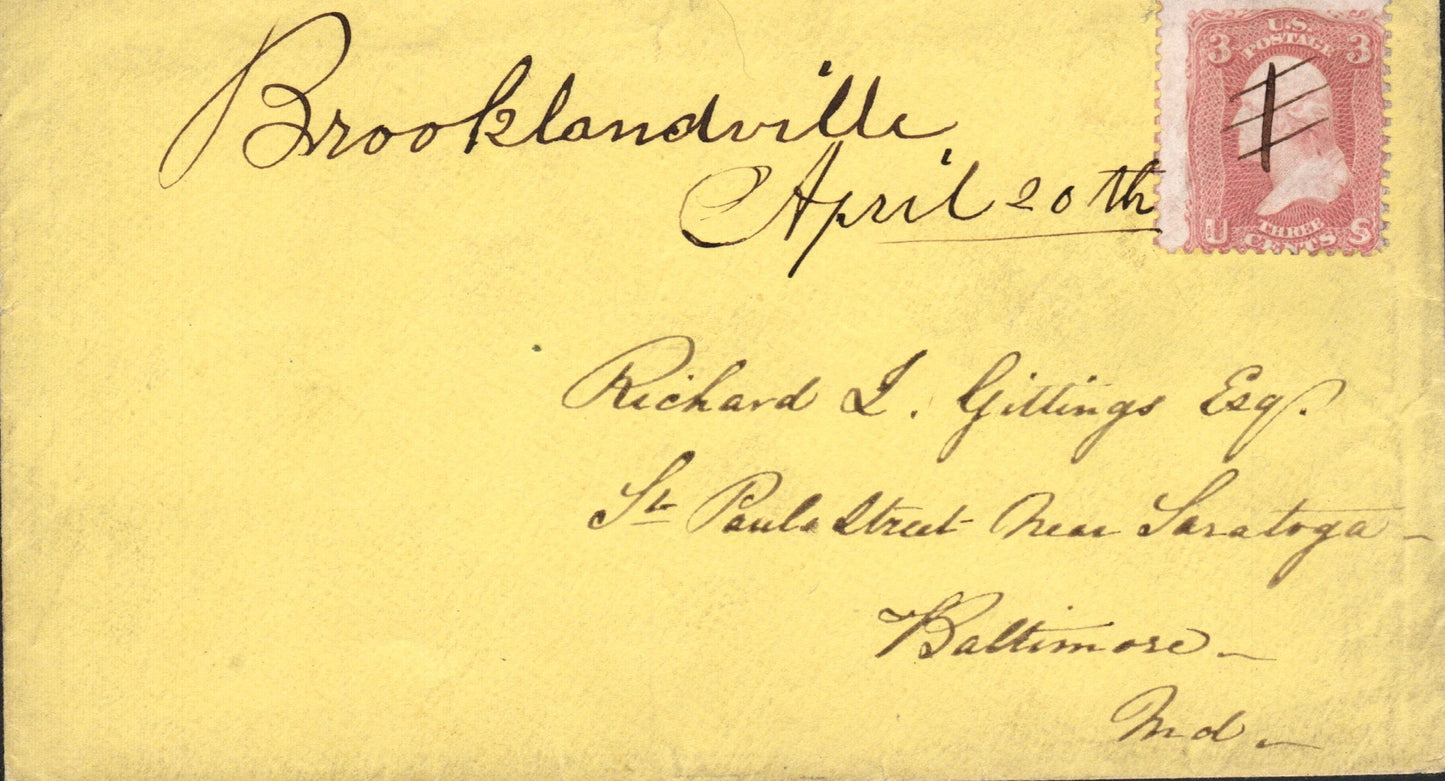 Brooklandville
April 20th
U.S.
POSTAGE
3 3
U S
THREE
CENTS
Richard J. Gittings Esq.
St. Paul Street near Saratoga
Baltimore
Md